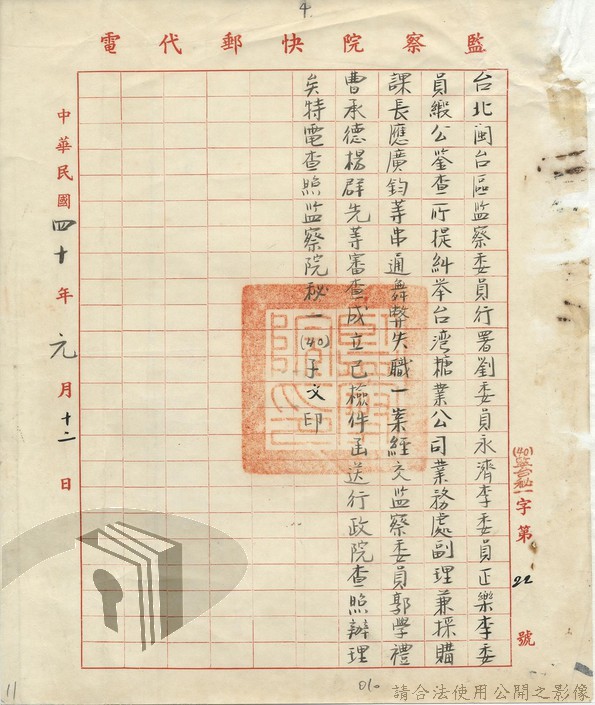 4.
監察院快郵代電
(40)監台秘一字第22號
台北閩台區監察委員行署劉委員永濟李委員正樂李委
員緞公鉴查所提糾举台湾糖業公司業務處副理兼採購
課長應廣鈞等串通舞弊失職一案經交监察委員郭学禮
曹承德楊群先等審查成立已檢件函送行政院查照辦理
矣特電查照监察院秘一(40)子文印
中華民國四十年元月十二日
01.
11
請合法使用公開之影像